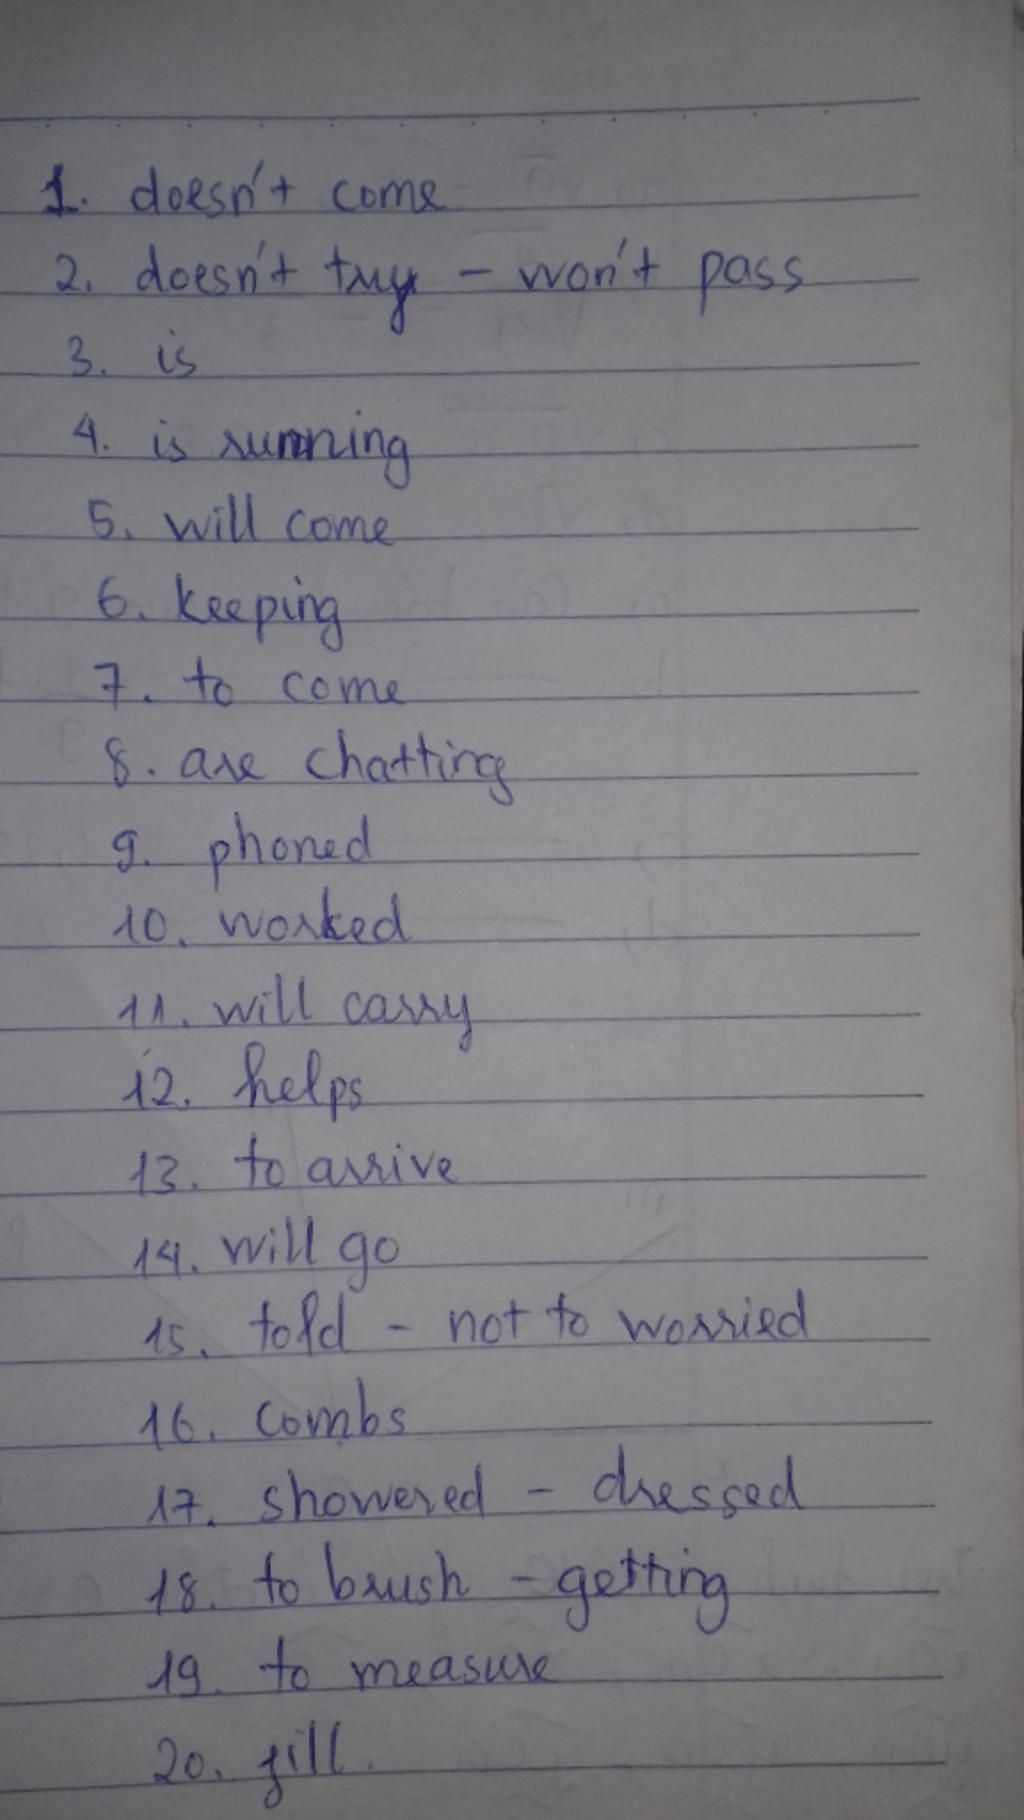 1. doesn't come
2. doesn't try - won't pass
3. is
4. is running
5. will come
6. keeping
7. to come
8. are chatting
9. phoned
10. worked
11. will carry
12. helps
13. to arrive
14. will go
15. told - not to worried
16. combs
17. showered - dressed
18. to brush - getting
19. to measure
20. fill.